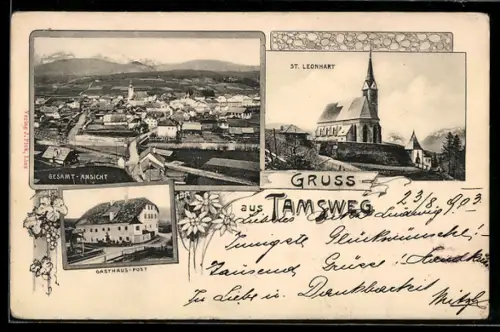 ST. LEONHART
GESAMT-ANSICHT
GRUSS
aus TAMSWEG
GASTHAUS-POST
23/8 1903
Liebster Ludwig
Innigste Glückwünsche!
Tausend Grüsse!
In Liebe u. Dankbarkeit
Mitzi